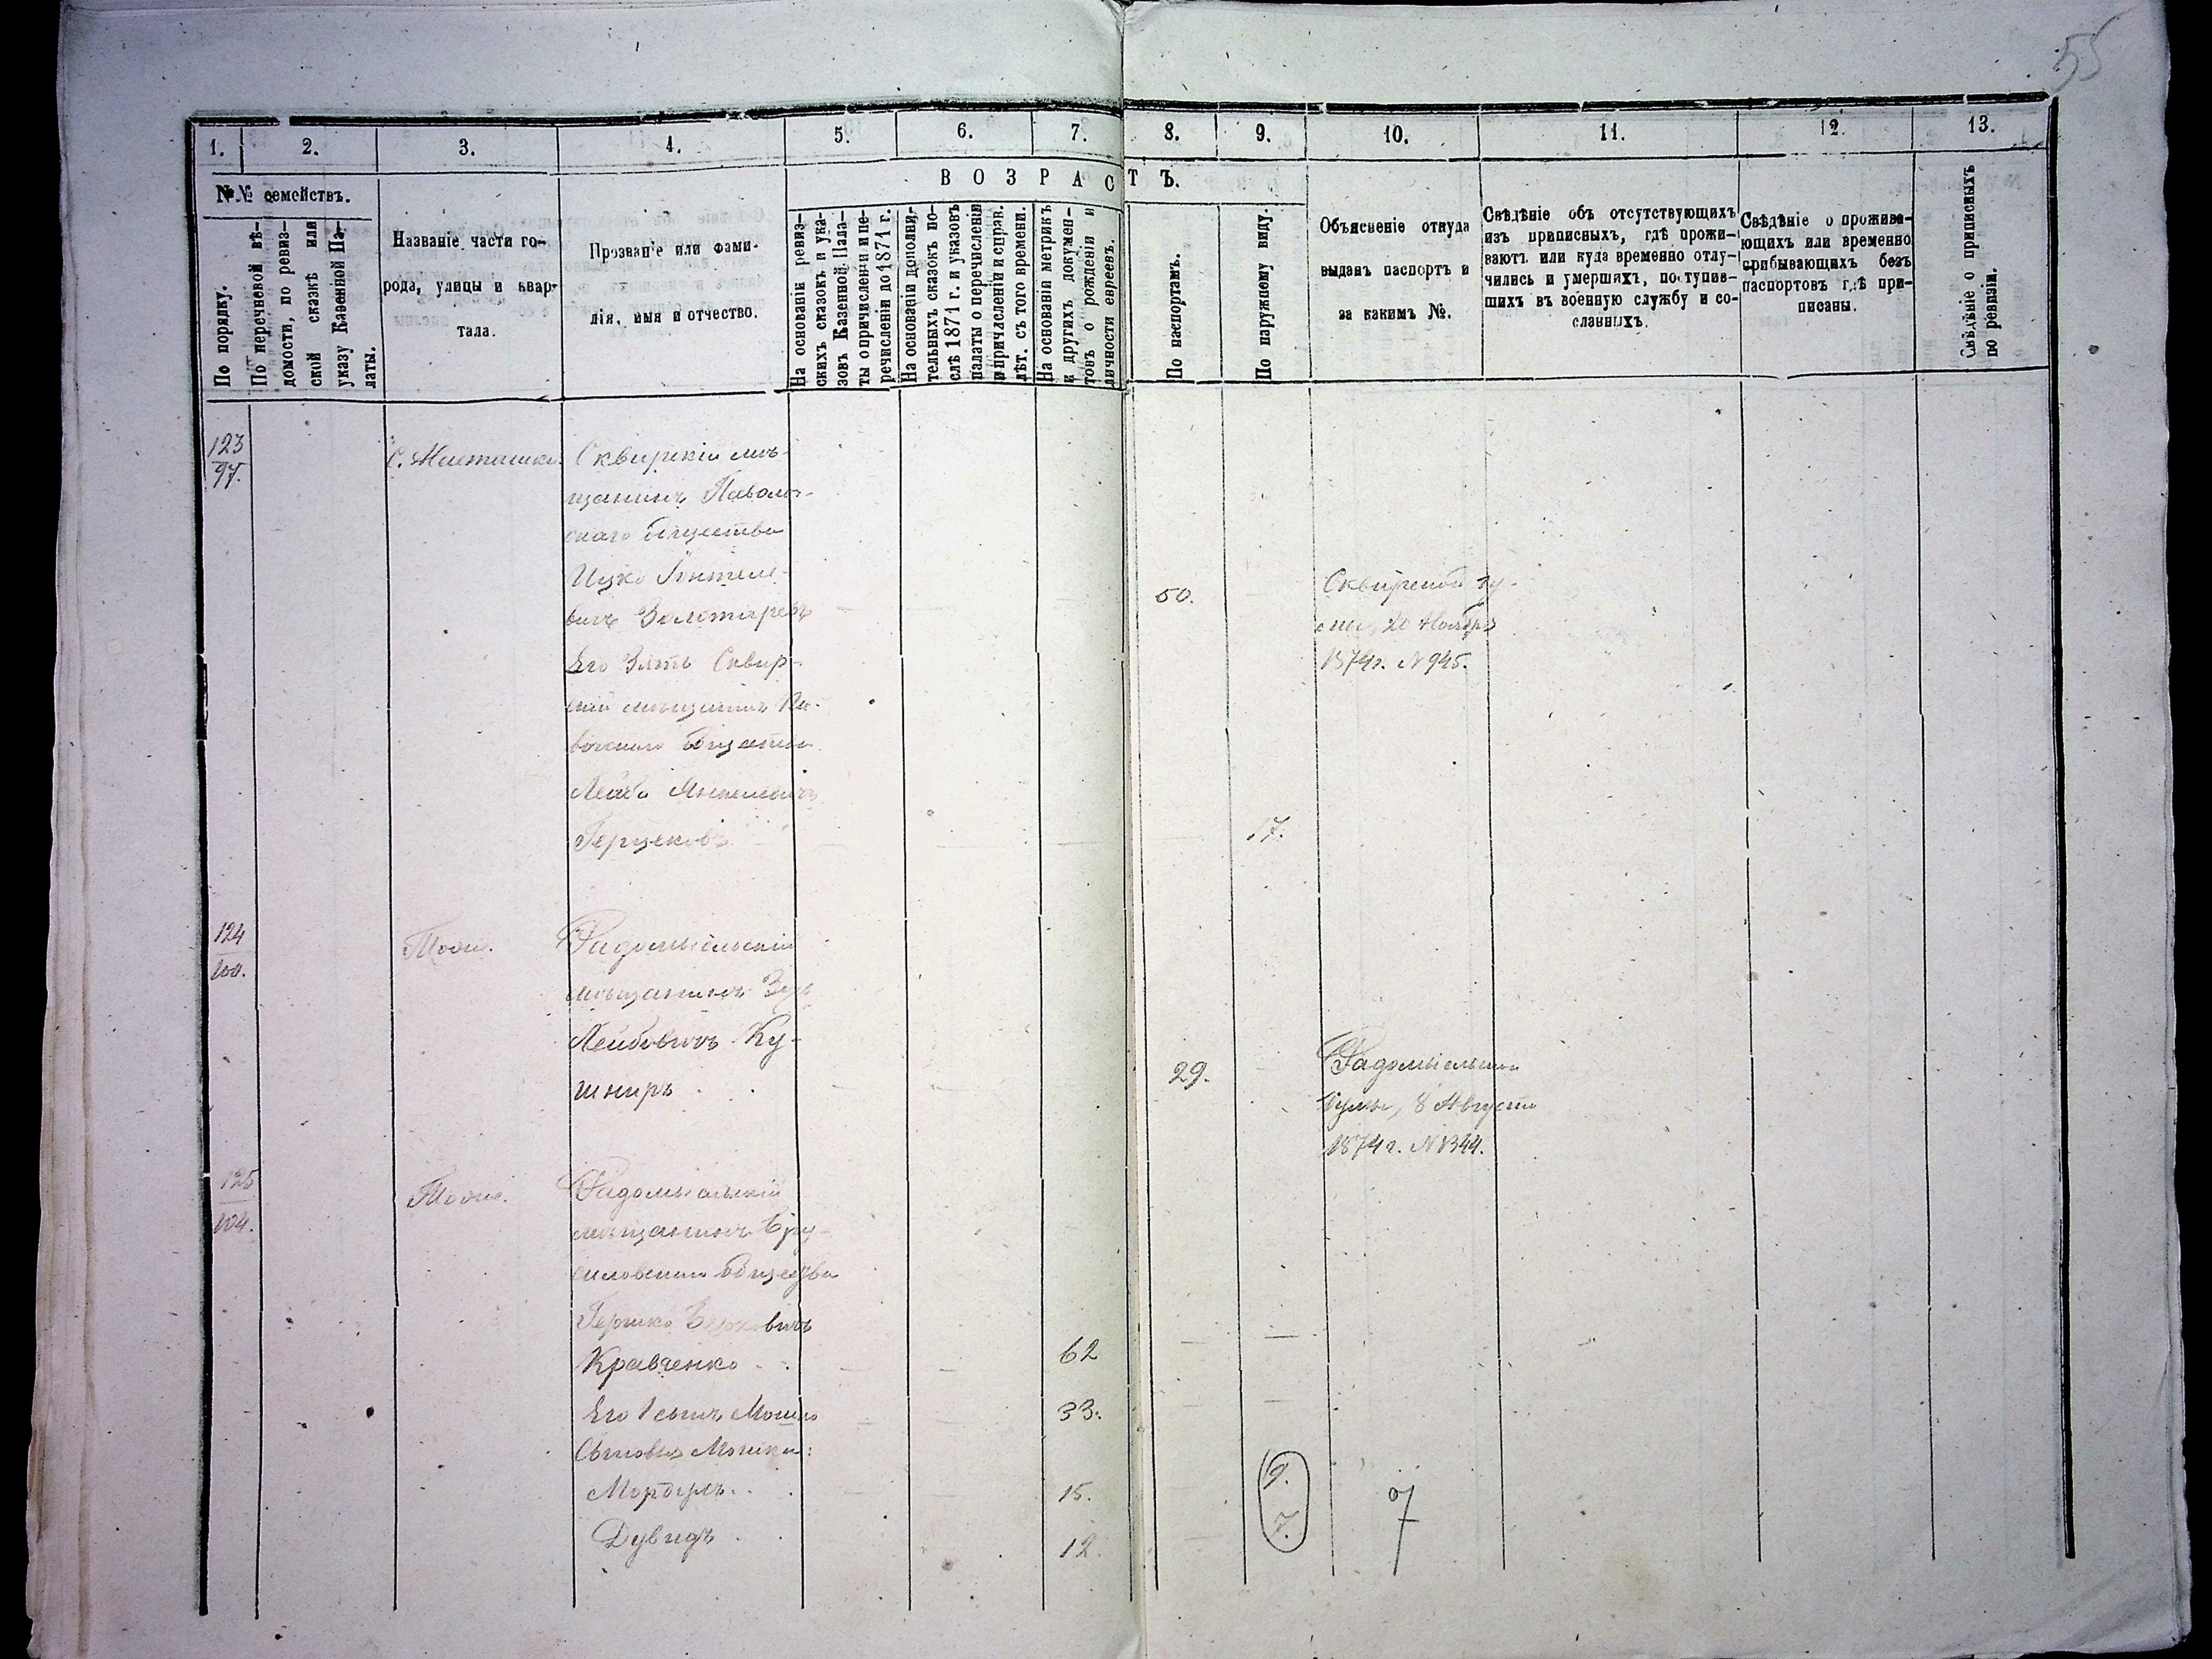 55
1. 2. 3. 4. 5. 6. 7. 8. 9. 10. 11. 12. 13.
№№ семействъ.
По порядку.
По перечневой вѣ-
домости, по ревиз-
ской сказкѣ или
указу Казенной Па-
латы.
Названіе части го-
рода, улицы и квар-
тала.
Прозваніе или фами-
лія, имя и отчество.
ВОЗРАСТЪ.
На основаніи ревиз-
скихъ сказокъ и ука-
зовъ Казенной Пала-
ты о причисленіи и пе-
речисленіи до 1871 г.
На основаніи дополни-
тельныхъ сказокъ по-
слѣ 1871 г. и указовъ
палаты о перечисленіи
и причисленіи и справ.
лѣт. съ того времени.
На основаніи метрикъ
и другихъ докумен-
товъ о рожденіи и
личности евреевъ.
По паспортамъ.
По наружному виду.
Объясненіе откуда
выданъ паспортъ и
за какимъ №.
Свѣдѣніе объ отсутствующихъ
изъ приписныхъ, гдѣ прожи-
ваютъ или куда временно отлу-
чились и умершихъ, поступив-
шихъ въ военную службу и со-
сланныхъ.
Свѣдѣніе о прожива-
ющихъ или временно
прибывающихъ безъ
паспортовъ гдѣ при-
писаны.
Свѣдѣніе о приписныхъ
по ревизіи.
123
97.
Сквирскій мѣ-
щанинъ Паволоч-
скаго общества
Ицко
вичъ Золотаревъ
50.
20 Ноября
1874г. №945.
Его Зять Сквир-
скій мѣщанинъ Па-
общества
Лейба Янкелевичъ
Герцековъ
17.
124
100.
Тоже.
Радомысльскій
мѣщанинъ
Лейбовичъ Ку-
шниръ
29.
Радомысльской
Думы, 8 Августа
1874г. №1344.
125
104.
Тоже.
Радомысльскій
мѣщанинъ Бру-
силовскаго общества
Гершко Берковичъ
Кравченко 62
Его 1 сынъ Мошко 33.
Сыновья Мошки:
Мордухъ 15. 9.
Дувидъ 12. 7.